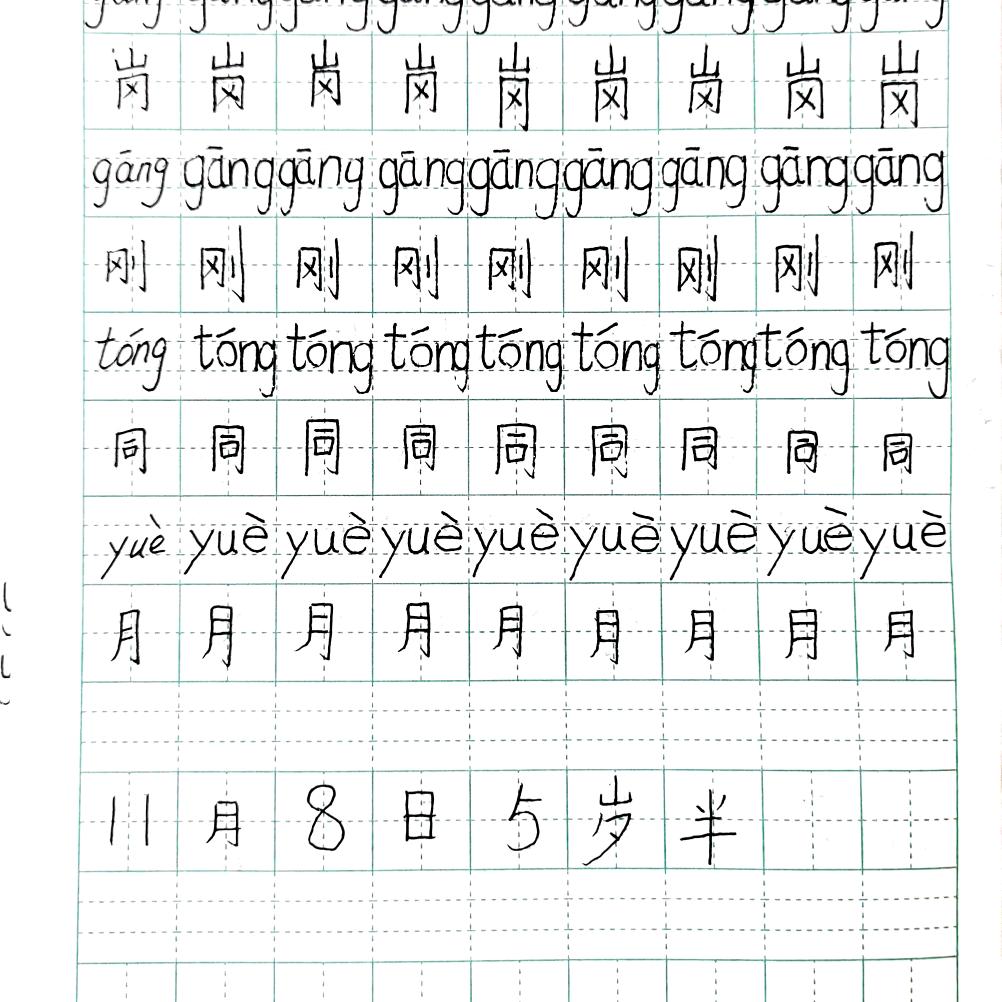 岗 岗 岗 岗 岗 岗 岗 岗 岗
gāng gāng gāng gāng gāng gāng gāng gāng gāng
刚 刚 刚 刚 刚 刚 刚 刚 刚
tóng tóng tóng tóng tóng tóng tóng tóng tóng
同 同 同 同 同 同 同 同 同
yuè yuè yuè yuè yuè yuè yuè yuè yuè
月 月 月 月 月 月 月 月 月
11 月 8 日 5 岁 半